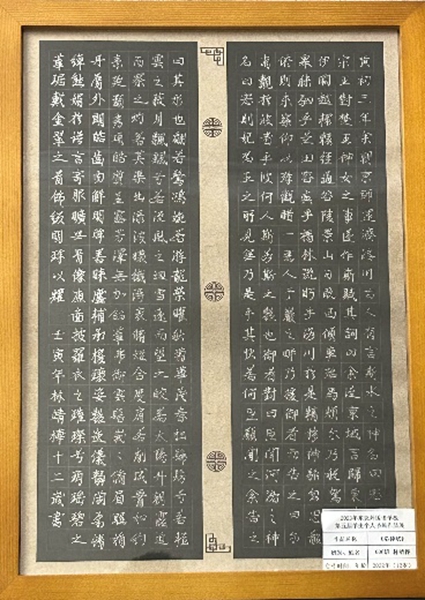 黃初三年余朝京師還濟洛川古人有言斯水之神名曰宓妃感
宋玉對楚王神女之事遂作斯賦其詞曰余從京域言歸東藩背
伊闕越轘轅經通谷陵景山日既西傾車殆馬煩爾乃稅駕乎蘅
皋秣駟乎芝田容與乎陽林流眄乎洛川於是精移神駭忽焉思散
俯則未察仰以殊觀睹一麗人于巖之畔乃援御者而告之曰爾
有覿於彼者乎彼何人斯若斯之艷也御者對曰臣聞河洛之神
名曰宓妃則君王之所見無乃是乎其狀若何臣願聞之余告之
曰其形也翩若驚鴻婉若游龍榮曜秋菊華茂春松髣髴兮若輕
雲之蔽月飄飖兮若流風之迴雪遠而望之皎若太陽升朝霞迫
而察之灼若芙蕖出淥波穠纖得衷脩短合度肩若削成腰如約
素延頸秀項皓質呈露芳澤無加鉛華弗御雲髻峩峩脩眉聯娟
丹脣外朗皓齒內鮮明眸善睞靨輔承權瓌姿艷逸儀靜體閑柔情
綽態媚於語言奇服曠世骨像應圖披羅衣之璀粲兮珥瑤碧之
華琚戴金翠之首飾綴明珠以耀 壬寅年林 樺十二歲書
作品名称 《洛神赋》